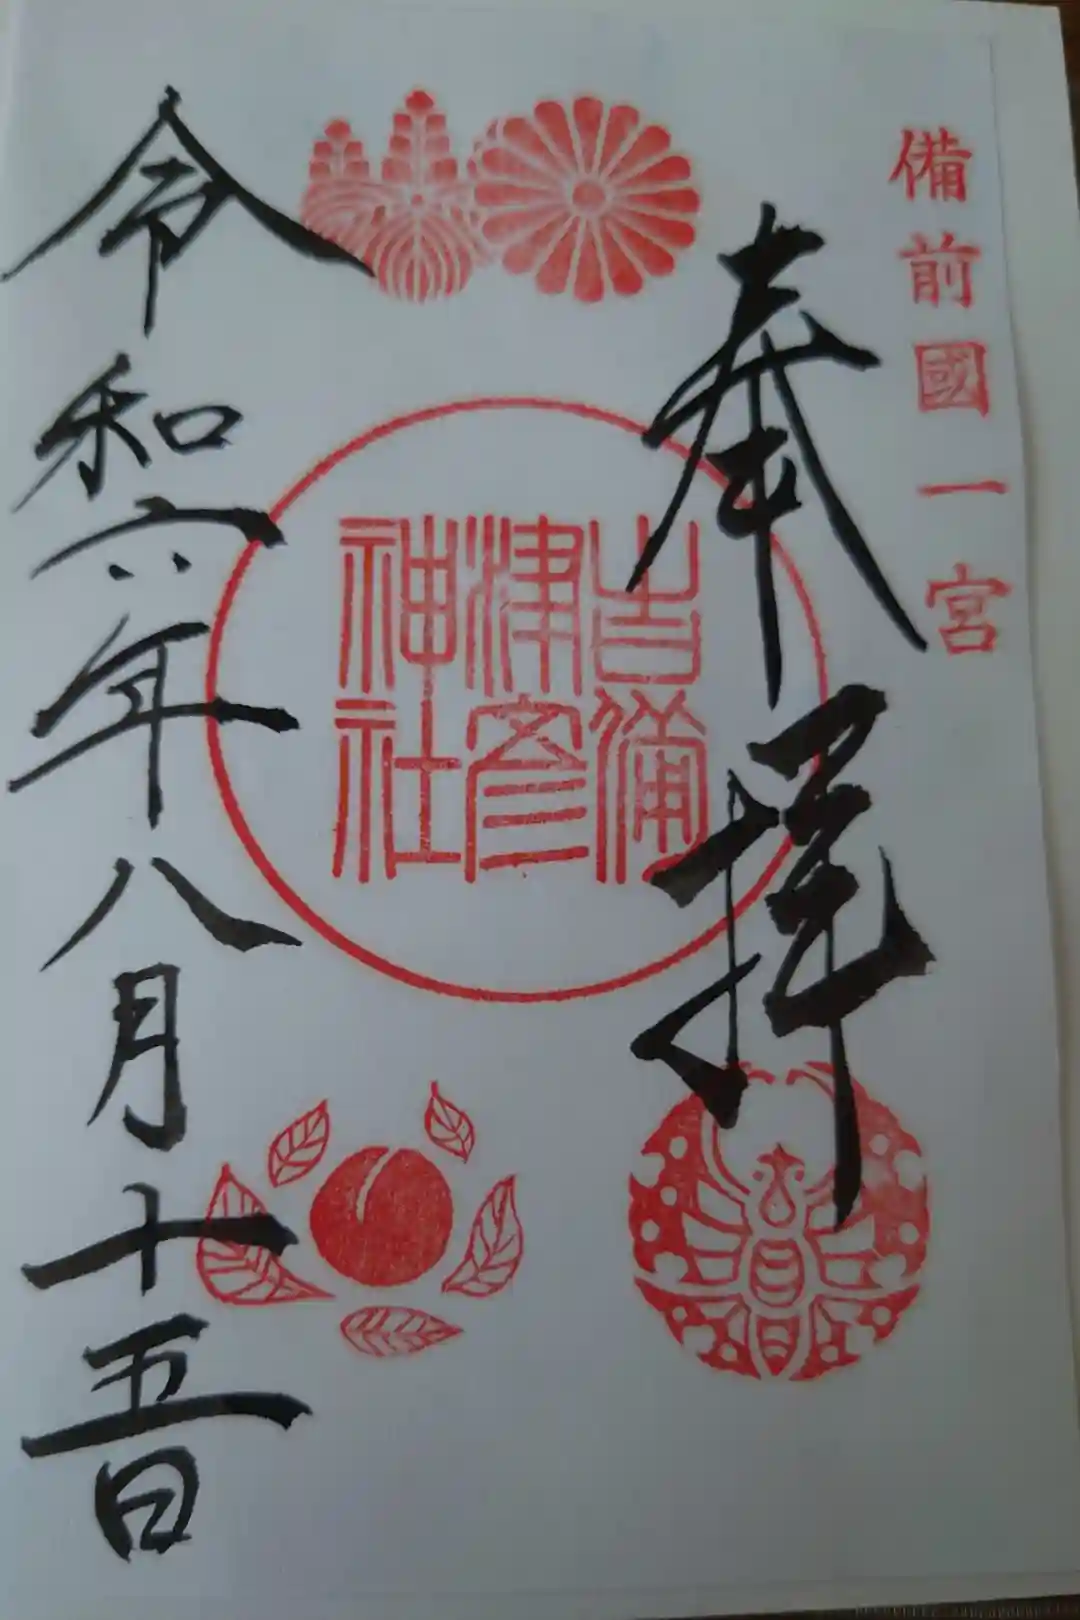 備前國一宮
奉拝
吉備
津彦
神社
令和六年八月十五日